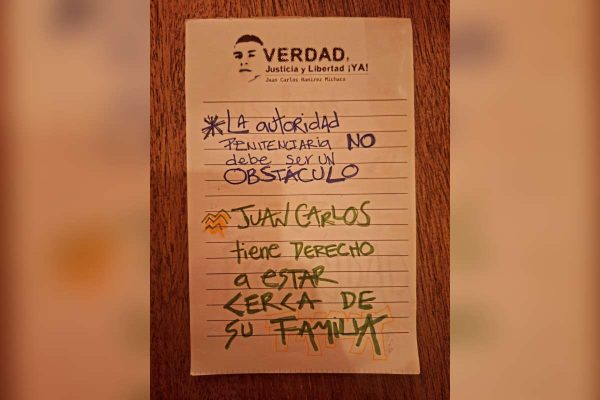 VERDAD,
Justicia y Libertad ¡YA!
Juan Carlos Ramírez Michaca
*LA autoridad
PENITENCIARIA NO
debe ser UN
OBSTÁCULO
JUAN CARLOS
tiene DERECHO
a ESTAR
CERCA DE
SU FAMILIA